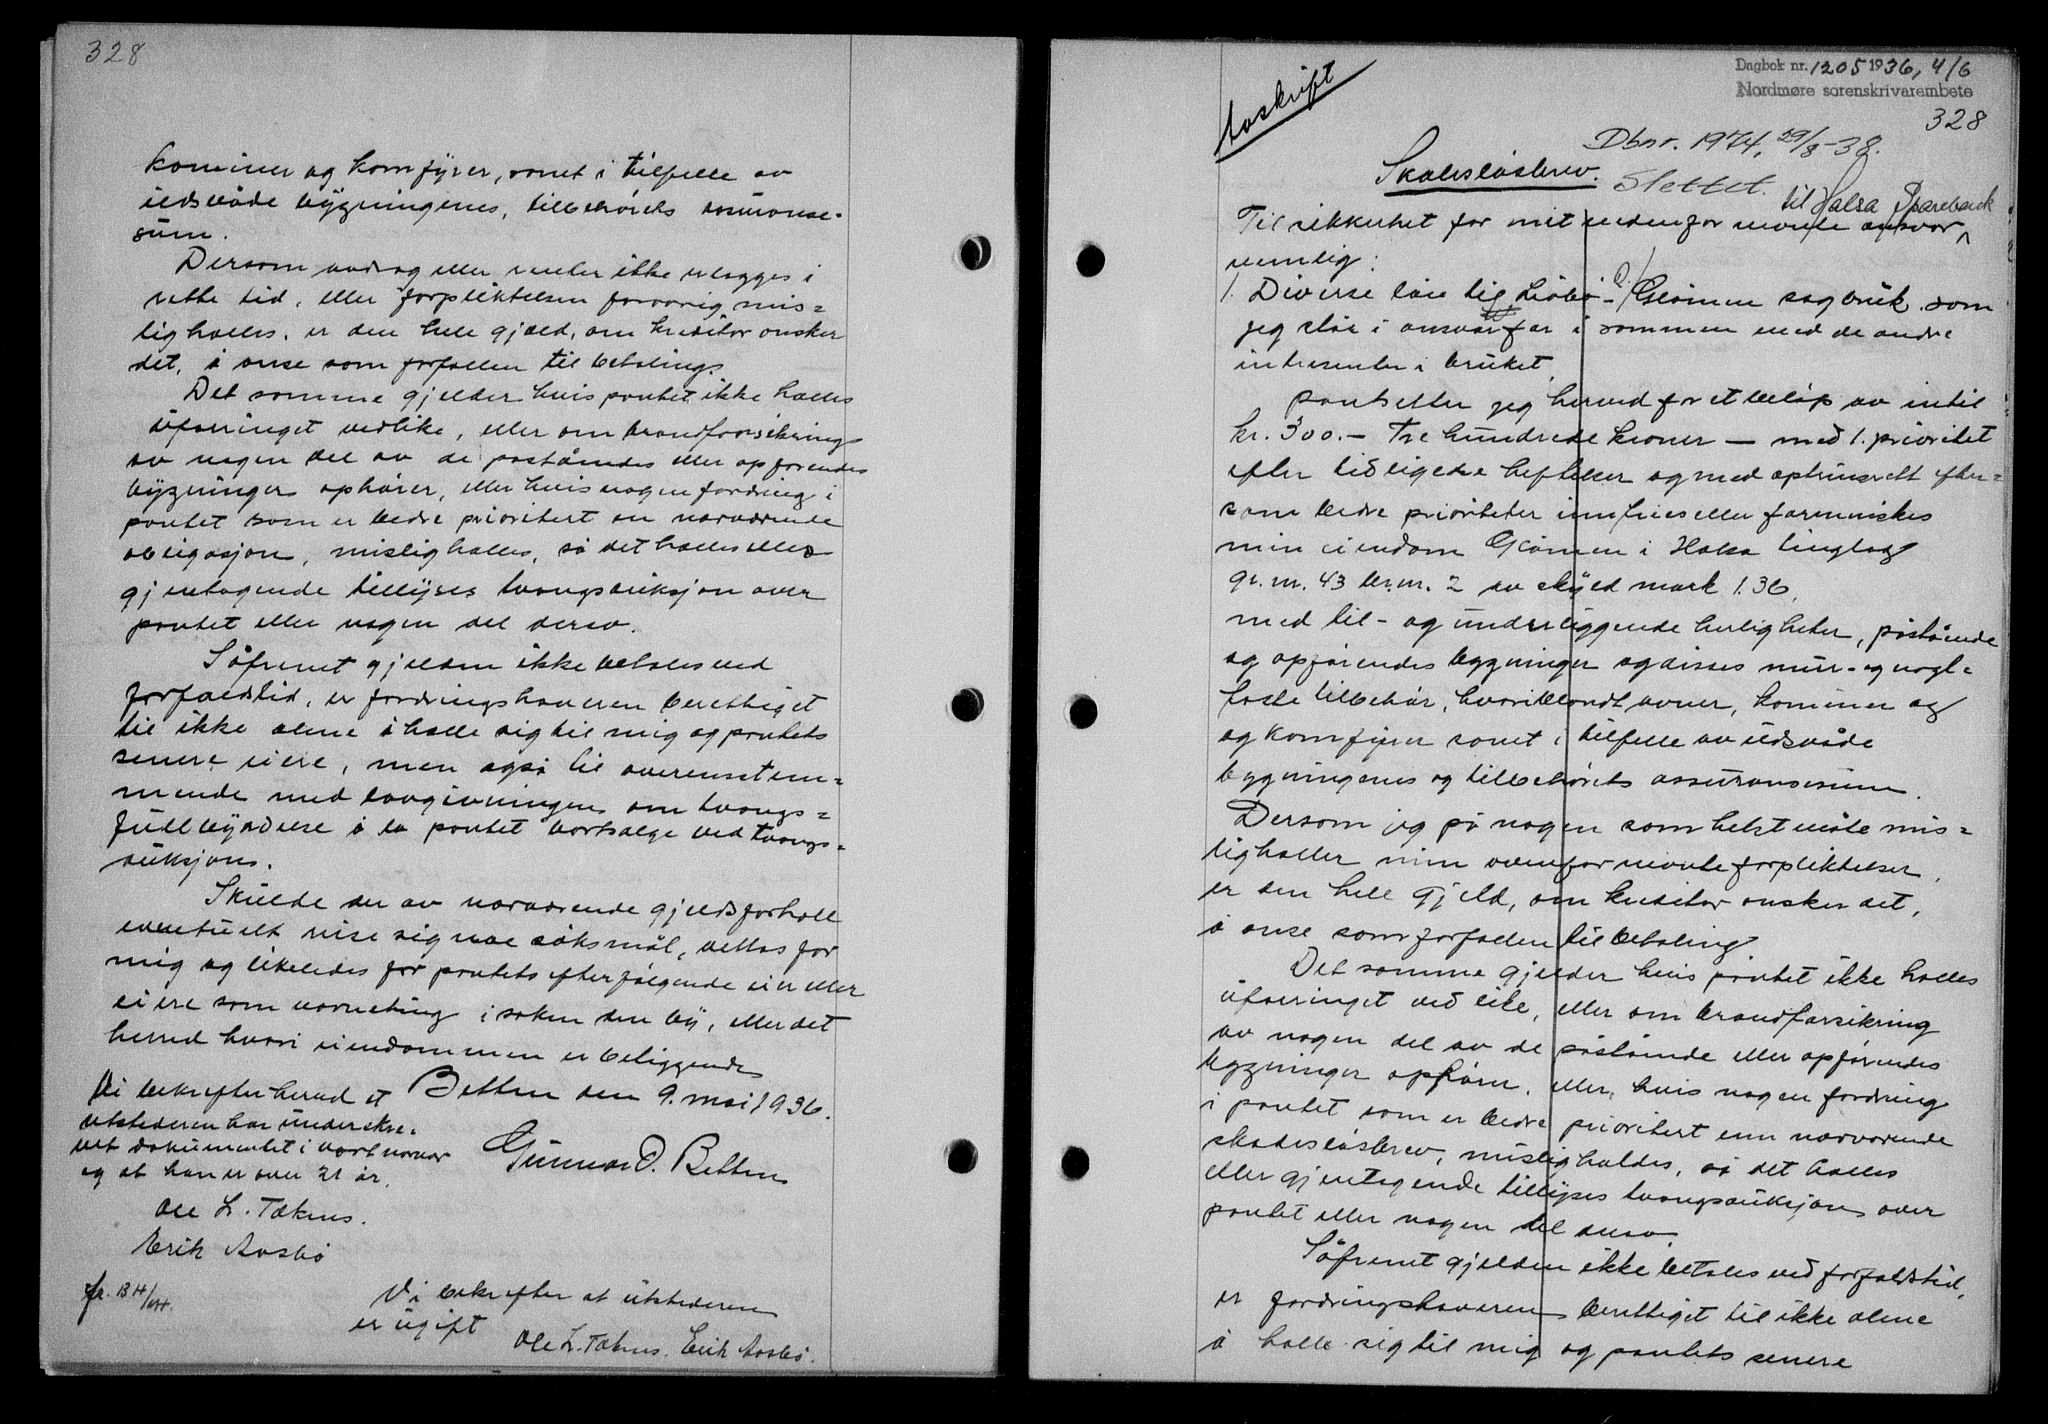 328
kominer og komfyrer, samt i tilfelle av
ildsvåde bygningenes, tilbehørets assuranse-
sum.
Dersom avdrag eller renter ikke erlegges i
rette tid, eller forpliktelsen forøvrig mis=
ligholles, er den hele gjæld, om kreditor ønsker
det, å anse som forfallen til betaling.
Det samme gjelder hvis pantet ikke holles
uforringet vedlike, eller om brandforsikring
av nogen del av de påståendes eller opførendes
bygninger ophører, eller hvis nogen fordring i
pantet som er bedre prioritert en nærværende
obligasjon, misligholles, så det holles eller
gjentagende tillyses tvangsauksjon over
pantet eller nogen del derav.
Såfremt gjelden ikke betales ved
forfaldstid, er fordringshaveren berettiget
til ikke alene å holle sig til mig og pantets
senere eiere, men også til overensstem=
mende med lovgivningen om tvangs=
fullbyrdelse å la pantet bortselge ved tvangs=
auksjon.
Skulde der av nærværende gjeldsforholl
eventuelt reise sig noe søksmål, vettas for
mig og likeledes for pantets efterfølgende eier eller
eiere som verneting i saken den by, eller det
herred hvori eiendommen er beliggende
Betten den 9. mai 1936.
Vi bekrefter herved at
utstederen har underskre=
vet dokumentet i vort nærvær
og at han er over 21 år.
Gunnar O. Betten
Ole L. Tæknes.
Erik Aasbø
Vi bekrefter at utstederen
er ugift
Ole L. Tæknes. Erik Aasbø.
Dagbok nr. 1205 1936, 4/6
Nordmøre sorenskrivarembete
328
Avskrift
Dbnr. 1974, 29/8-38.
Skadesløsbrev.
Slettet.
til Halsa Sparebank
Til sikkerhet for mit nedenfor nevnte ansvar
nemlig:
1. Diverse lån til Liabø - Glåmen sagbruk som
jeg står i ansvar for i sammen med de andre
intresenter i bruket
pantsetter jeg herved for et beløp av intil
kr. 300.- Tre hundrede kroner - med 1. prioritet
efter tidligere heftelser og med optrinsrett efter=
som bedre prioriteter innfries eller forminskes
min eiendom Glåmen i Halsa tinglag
gr. nr. 43 br. nr. 2 av skyld mark 1.36,
med til- og underliggende herligheter, påstående
og opførendes bygninger og disses mur- og nagl=
faste tilbehør, hvoriblandt ovner, kominer og
og komfyrer samt i tilfelle av ildsvåde
bygningenes og tilbehørets assuransesum.
Dersom jeg på nogen somhelst måte mis=
ligholler min ovenfor nevnte forpliktelser,
er den hele gjeld, om kreditor ønsker det,
å anse som forfallen til betaling
Det samme gjelder hvis pantet ikke holles
uforringet ved like, eller om brandforsikring
av nogen del av de påstående eller opførendes
bygninger ophører, eller, hvis nogen fordring
i pantet som er bedre prioritert enn nærværende
skadesløsbrev, misligholdes, så det holles
eller gjentagende tillyses tvangsauksjon over
pantet eller nogen del derav.
Såfremt gjelden ikke betales ved forfaldstid,
er fordringshaveren berettiget til ikke alene
å holle sig til mig og pantets senere